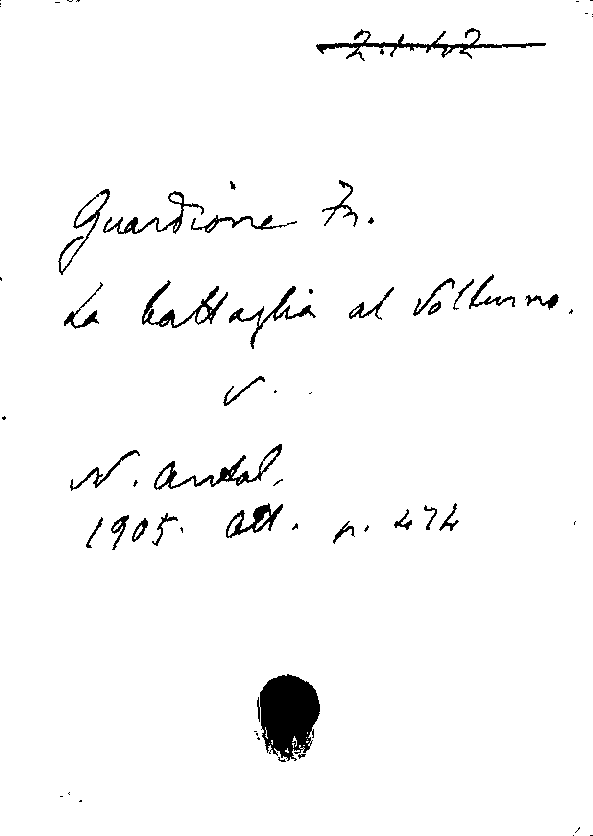 2.1.42
Guardione Fr.
La battaglia al Volturno.
v.
N. Antol.
1905. Ott. p. 474